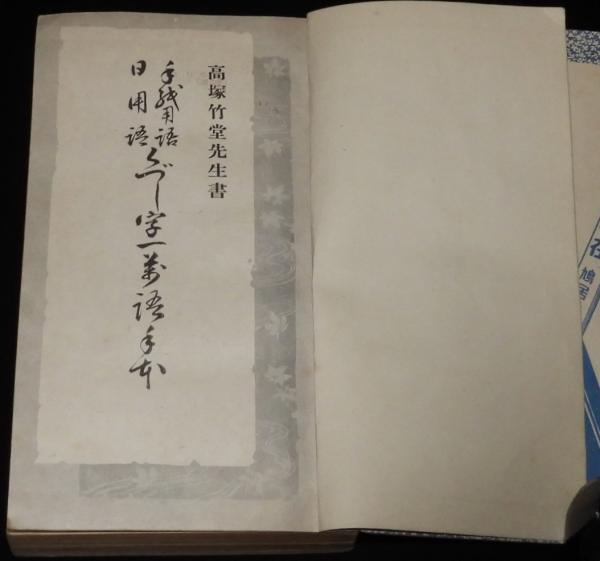 高塚竹堂先生書
手紙用語
日用語
くづし字一萬語手本
鳩居